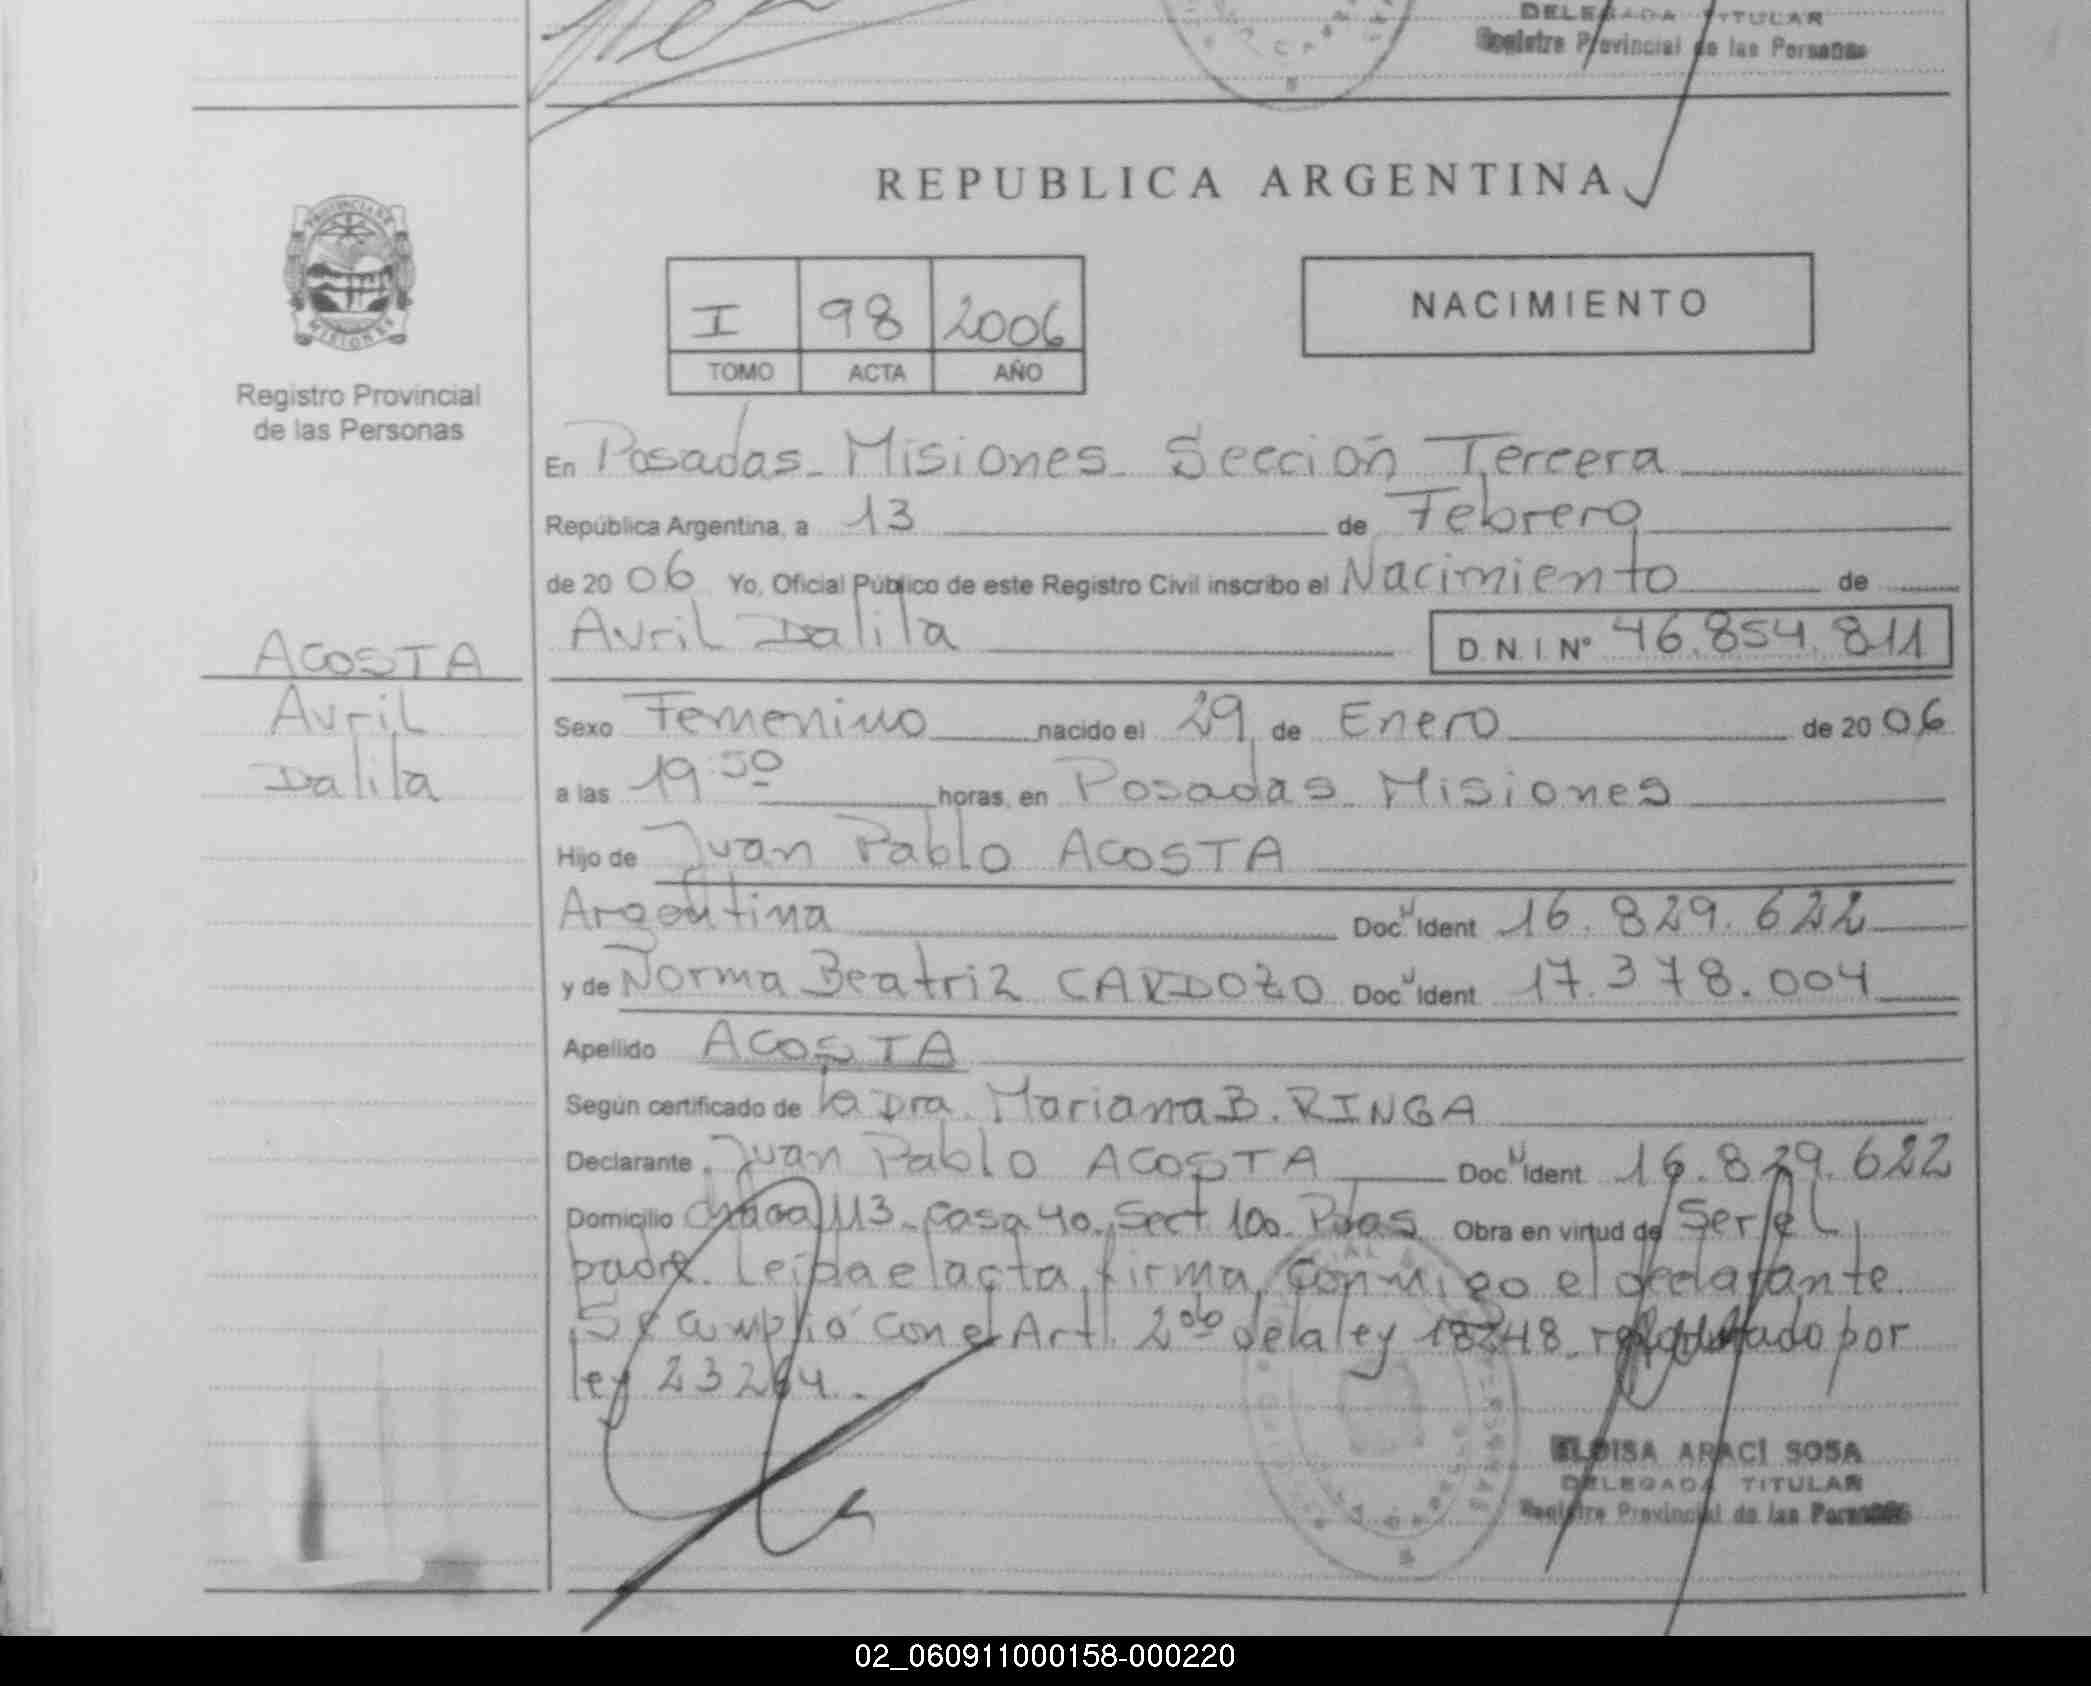 DELEGADA TITULAR
Registro Provincial de las Personas
REPUBLICA ARGENTINA
PROVINCIA DE
MISIONES
Registro Provincial
de las Personas
I 98 2006
TOMO ACTA AÑO
NACIMIENTO
En Posadas - Misiones - Sección Tercera
República Argentina, a 13 de Febrero
de 20 06 Yo, Oficial Público de este Registro Civil inscribo el Nacimiento de
Avril Dalila D.N.I. Nº 46.854.811
ACOSTA
Avril
Dalila
Sexo Femenino nacido el 29 de Enero de 20 06
a las 19:50 horas, en Posadas - Misiones
Hijo de Juan Pablo ACOSTA
Argentina Doc. Ident 16.829.622
y de Norma Beatriz CARDOZO Doc. Ident 17.378.004
Apellido ACOSTA
Según certificado de la Dra. Mariana B. RINGA
Declarante Juan Pablo ACOSTA Doc. Ident 16.829.622
Domicilio chacra 113 - casa 40. Sect. 100 - Pdas Obra en virtud de Ser el
padre. Leida el acta, firma conmigo el declarante.
Se cumplió con el Art. 2do de la ley 18248 por
ley 23264.
ELOISA ARACI SOSA
DELEGADA TITULAR
Registro Provincial de las Personas
02_060911000158-000220